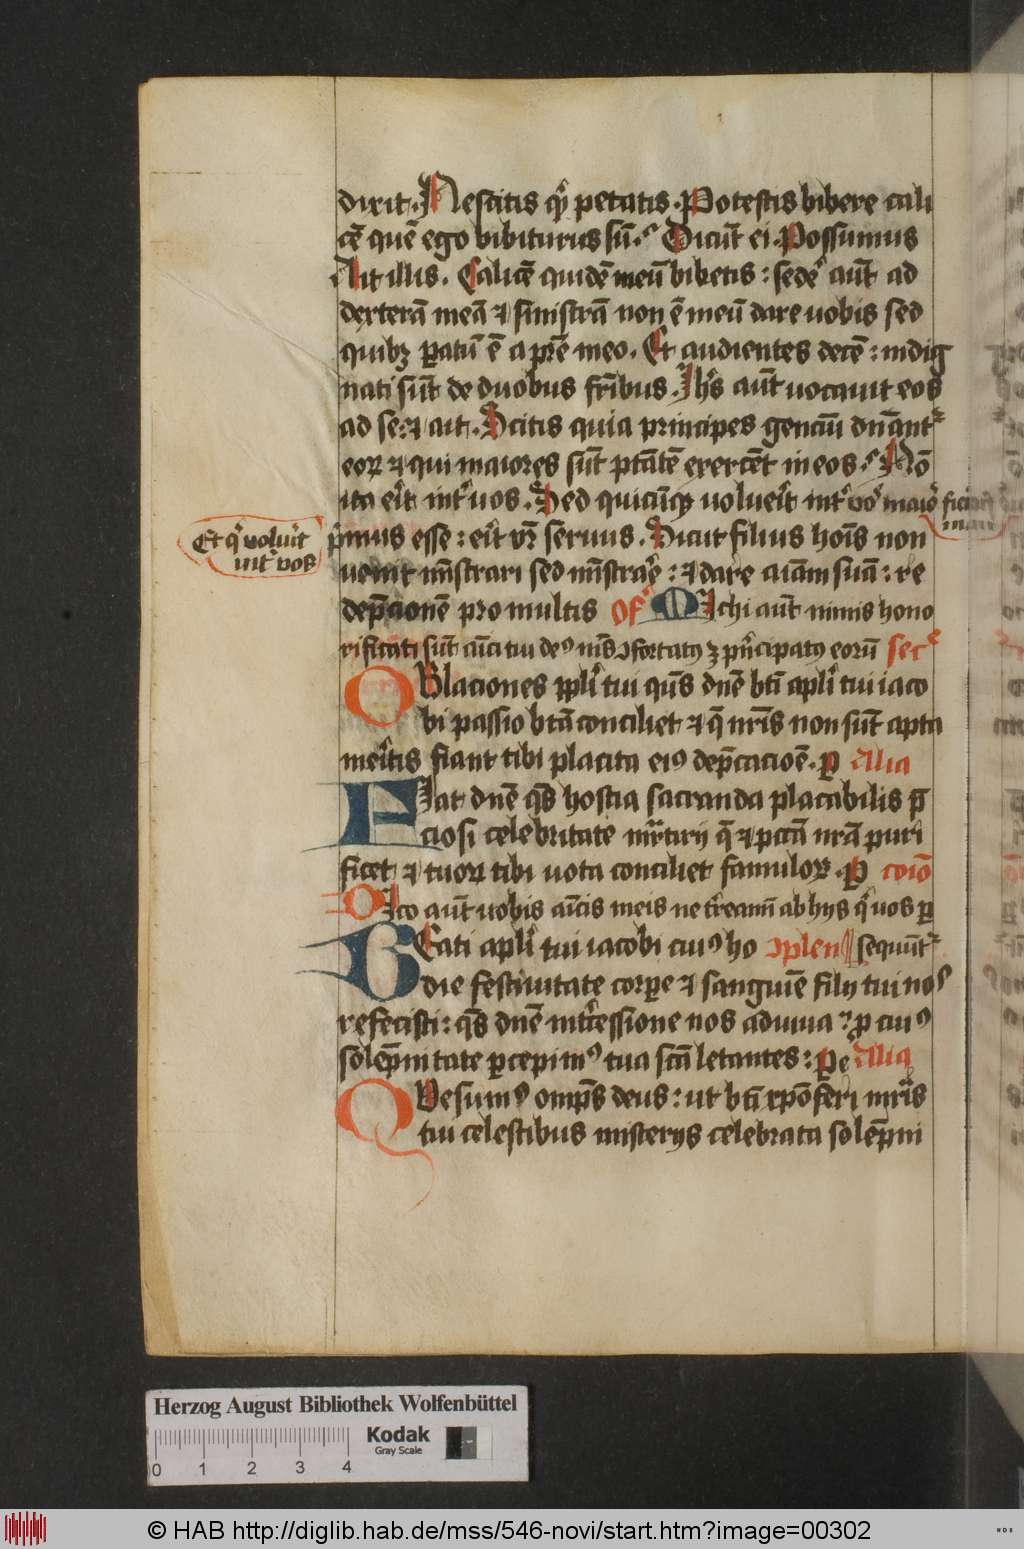 dixit. Nescitis qͥ petatis. Potestis bibere cali
cē quē ego bibiturus sū. Dicūt ei. Possumus
Ait illis. Calicē quidē meū bibetis: sedeͬ aūt ad
dexterā meā ⁊ sinistrā non ē meū dare uobis sed
quibꝫ ꝑatū ē a pr̄e meo. Et audientes decē: indig
nati sūt de duobus fr̄ibus. Jhs̄ aūt uocauit eos
ad se: ⁊ ait. Scitis quia principes genciū dn̄antᷣ
eoꝝ ⁊ qui maiores sūt ptātē exercēt in eos. Nō
ita eͥt intͬ uos. Sed quicūqꝫ uolueͥt intͬ voˢ maioͬ fieri
Et qͥ voluͥt
int' vos
pͥmus esse: eͥt vr̄ seruus. Sicut filius hoīs non
uenit mīstrari sed mīstraͬe: ⁊ dare aīam suā: re
dēpcionē pro multis Of Michi aūt nimis hono
rificati sūt amīci tui deꝰ nīs ꝯfortatꝰ ꝫ pͥncipatꝰ eorū secᷣ
OBlaciones ppl̄i tui qūs dn̄e bt̄i apl̄i tui iaco
bi passio btā conciliet ⁊ q̄ nr̄is non sūt apta
meͥtis fiant tibi placita eiꝰ dep̄cacioē. ꝑ Alia
FIat dn̄e qs̄ hostia sacranda placabilis p̄
ciosi celebritate mr̄tirij q̄ ⁊ pctā nrā puri
ficet ⁊ tuoꝝ tibi uota conciliet famuloꝝ. P coīo
DIco aūt uobis amīcis meis ne tr̄eamī ab hijs qͥ uos ꝑ
sequūtᷣ
BEati apl̄i tui iacobi cuiꝰ ho ꝯplen
die festiuitate corꝑe ⁊ sanguīe filij tui noˢ
refecisti: qs̄ dn̄e int̄cessione nos adiuua ꝓ cuiꝰ
solēpnitate ꝑcepimꝰ tua sctā letantes: ꝑ Alia
QVesumꝰ omps̄ deus: ut bt̄i xpōferi mr̄is
tui celestibus misterijs celebrata solēpni
Herzog August Bibliothek Wolfenbüttel
Kodak
Gray Scale
0 1 2 3 4
© HAB http://diglib.hab.de/mss/546-novi/start.htm?image=00302
HAB